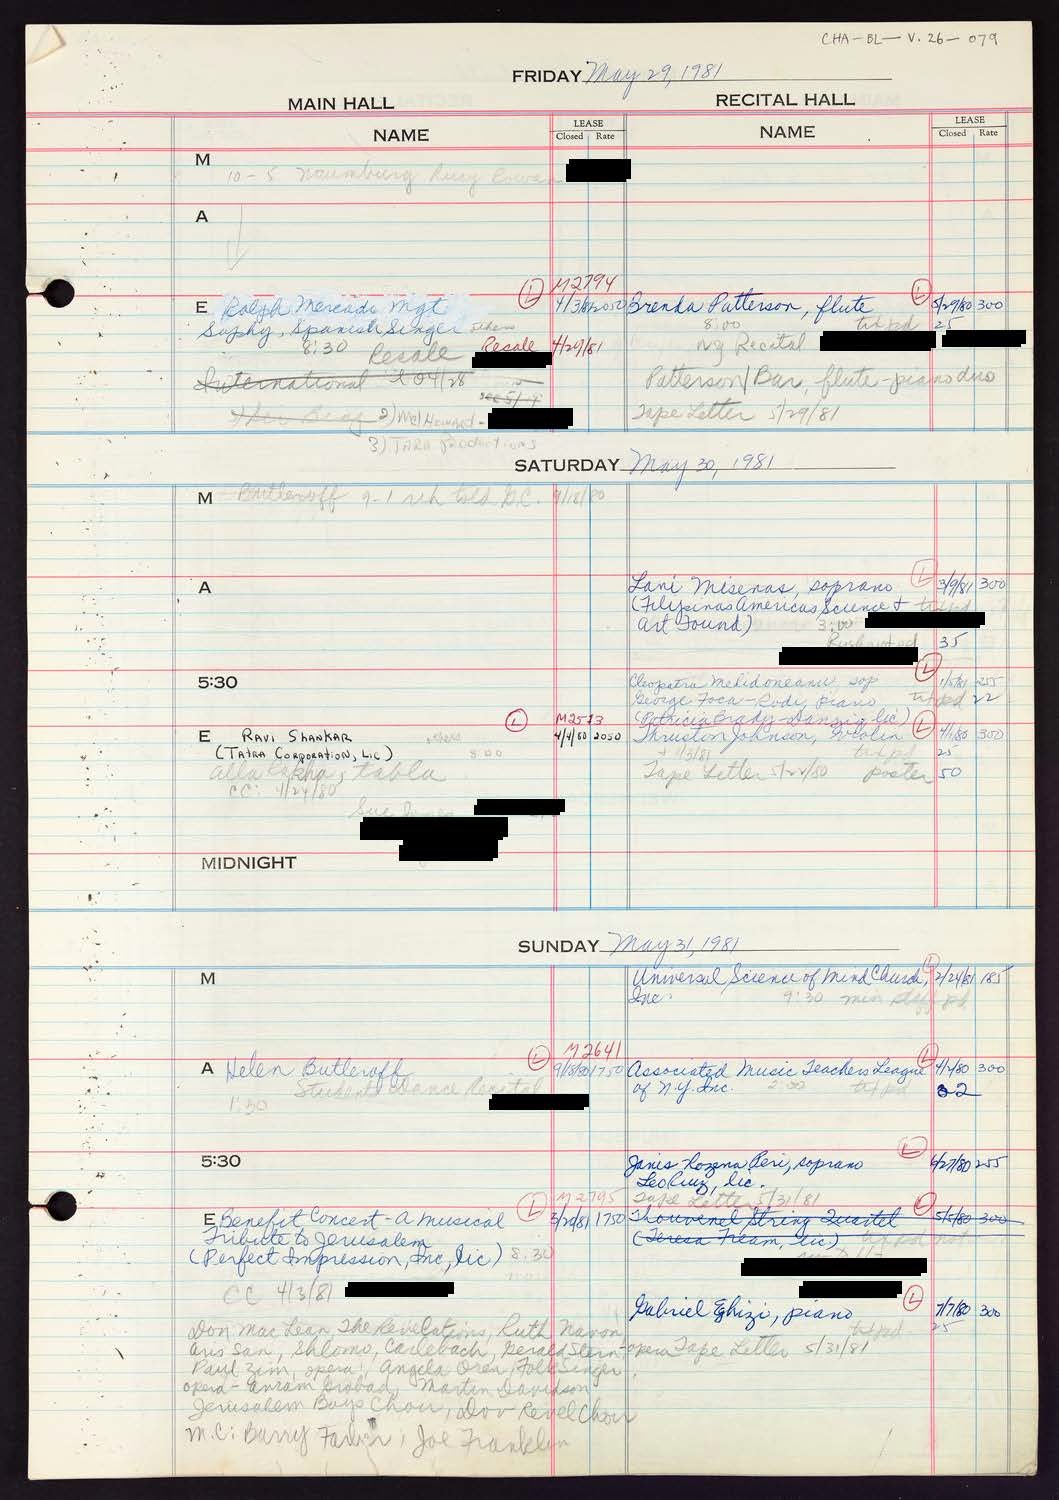 CHA-BL-V.26-079
FRIDAY May 29, 1981
MAIN HALL
RECITAL HALL
NAME
LEASE
Closed Rate
NAME
LEASE
Closed Rate
M
10-5 Naumburg
A
M2794
E Ralph Mercado Mgt
L
4/3/81 2050
Suphy, Spanish Singer others
8:30 Resale Resale 4/29/81
International
2) 
3) TARA Productions
Brenda Patterson, flute
L
5/29/80 300
8:00 tax pd 25
NY Recital
Patterson/Bar, flute-piano duo
Tape Letter 5/29/81
SATURDAY May 30, 1981
M Butleroff 9-1 told G.C. 9/18/80
A
Lani Misenas, soprano
L
3/9/81 300
(Filipinas Americas Science +
Art Found) 3:00
35
5:30
Cleopatra Melidoneanu, sop
L
1/5/81 255
George Foca-Rodi, piano 22
(Patricia Brady-Danzig, lic)
L
M2513
E RAVI SHANKAR others
4/4/80 2050
(TATRA CORPORATION, LIC) 8:00
Alla Rakha, tabla
CC: 4/24/80
L
Thruston Johnson, violin
4/1/80 300
25
Tape Letter 5/22/80 poster 50
MIDNIGHT
SUNDAY May 31, 1981
M
Universal Science of Mind Church,
L
2/24/81 185
Inc. 9:30 min staff pd
M2641
A Helen Butleroff
L
9/18/80 1750
Student Dance Recital
1:30
Associated Music Teachers League
L
4/4/80 300
of N.Y. Inc. 2:00
5:30
Janis-Rozena Peri, soprano
L
255
Leo Ruiz, lic.
Tape Letter 5/31/81
M2795
E Benefit Concert - A Musical
L
1750
Tribute to Jerusalem
(Perfect Impression, Inc, lic) 8:30
CC 4/3/81
Thouvenel String Quartet
L
5/5/80 300
(Teresa Fream, lic.)
Gabriel Eghizi, piano
L
7/7/80 300
25
Tape Letter 5/31/81
Don MacLean, The Revelations, Ruth Navon,
Aris San, Shlomo Carlebach, Gerald Stern-opera
Paul Zim, opera, Angela Oren, Folk Singer,
opera - Martin Davidson
Jerusalem Boys Choir, Dov Revel Choir
M.C: Barry Farber, Joe Franklin